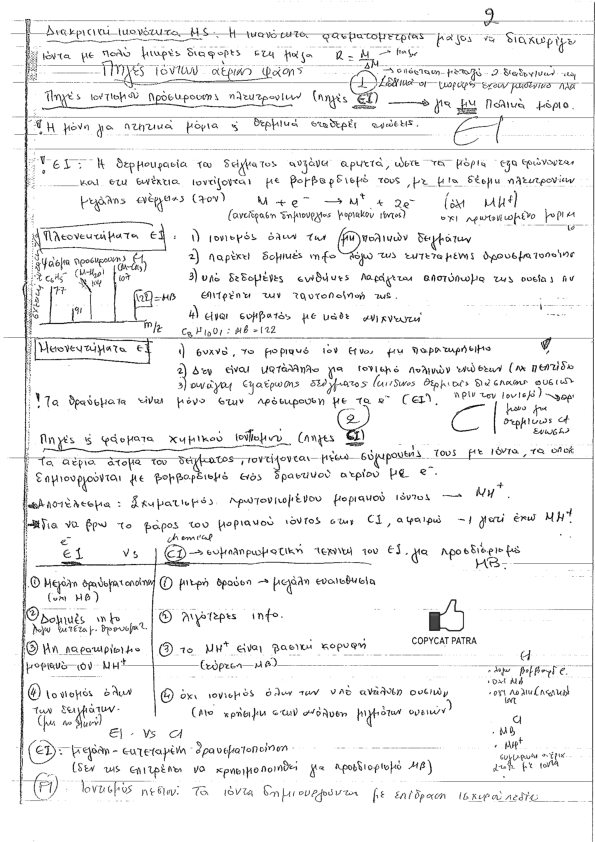 2
Διακριτική ικανότητα MS: Η ικανότητα φασματομετρίας μάζας να διαχωρίζει
ιόντα με πολύ μικρές διαφορές στη μάζα R = M/ΔM
Πηγές ιόντων αέριας φάσης
απόσταση μεταξύ 2 διαδοχικών
1
Πηγές ιοντισμού πρόσκρουσης ηλεκτρονίων (πηγές EI) → για μη πολικά μόρια.
! Η μόνη για πτητικά μόρια & θερμικά σταθερές ενώσεις. EI
! EI: Η θερμοκρασία του δείγματος αυξάνει αρκετά, ώστε τα μόρια εξαερώνονται
και στη συνέχεια ιοντίζονται με βομβαρδισμό τους, με μια δέσμη ηλεκτρονίων
μεγάλης ενέργειας (70v) M + e⁻ → M⁺ + 2e⁻ (όχι MH⁺)
(αντίδραση δημιουργίας μοριακού ιόντος) όχι πρωτονιωμένο μοριακ
Πλεονεκτήματα EI: 1) ιονισμός όλων των μη πολικών δειγμάτων
2) παρέχει δομικές info λόγω της εκτεταμένης θραυσματοποίησ
3) υπό δεδομένες συνθήκες παράγεται αποτύπωμα της ουσίας
επιτρέπει την ταυτοποίηση της.
4) είναι συμβατός με κάθε ανιχνευτή
C8H10O1: MB = 122
Φάσμα προσκρουσης EI
C6H5⁻
77
91
(M-H2O)
104
107
122 = MB
m/z
Μειονεκτήματα EI 1) συχνά, το μοριακό ιόν είναι μη παρατηρήσιμο
2) Δεν είναι κατάλληλο για ιονισμό πολικών ενώσεων (πχ πεπτίδια
3) ανάγκη εξαέρωσης δείγματος (κίνδυνος θερμικής διάσπασης ουσιών
πριν τον ιονισμό)
! Τα θραύσματα είναι μόνο στην πρόσκρουση με τα e⁻ (EI).
μόνο για
θερμικώς στ
ενώσεις
2
CI
Πηγές & φάσματα χημικού ιοντισμού (πηγές CI)
Τα αέρια άτομα του δείγματος, ιοντίζονται μέσω σύγκρουσής τους με ιόντα, τα οποί
δημιουργούνται με βομβαρδισμό ενός δραστικού αερίου με e⁻.
Αποτέλεσμα: Σχηματισμός πρωτονιωμένου μοριακού ιόντος → MH⁺.
Για να βρω το βάρος του μοριακού ιόντος στην CI, αφαιρώ -1 γιατί έχω MH⁺!
e⁻
chemical
EI vs CI → συμπληρωματική τεχνική του EI για προσδιορισμό
MB.
① Μεγάλη θραυσματοποίηση
(όχι MB)
① μικρή θραύση → μεγάλη ευαισθησία
② Δομικές info
λόγω εκτεταμ. θραυσματ.
② λιγότερες info.
COPYCAT PATRA
③ Μη παρατηρίσιμο
μοριακό ιόν MH⁺
③ το MH⁺ είναι βασική κορυφή
(εύρεση MB)
④ Ιονισμός όλων
των δειγμάτων.
(μη πολικών)
④ όχι ιονισμός όλων των υπό ανάλυση ουσιών
(πιο χρήσιμο στην ανάλυση μιγμάτων ουσιών)
EI
• λόγω βομβαρδ e.
• όχι MB
CI
• MB
• MH⁺
EI vs CI
EI: μεγάλη-εκτεταμένη θραυσματοποίηση
(δεν της επιτρέπει να χρησιμοποιηθεί για προσδιορισμό MB)
FI Ιοντισμός πεδίου: Τα ιόντα δημιουργούνται με επίδραση ισχυρού πεδίο